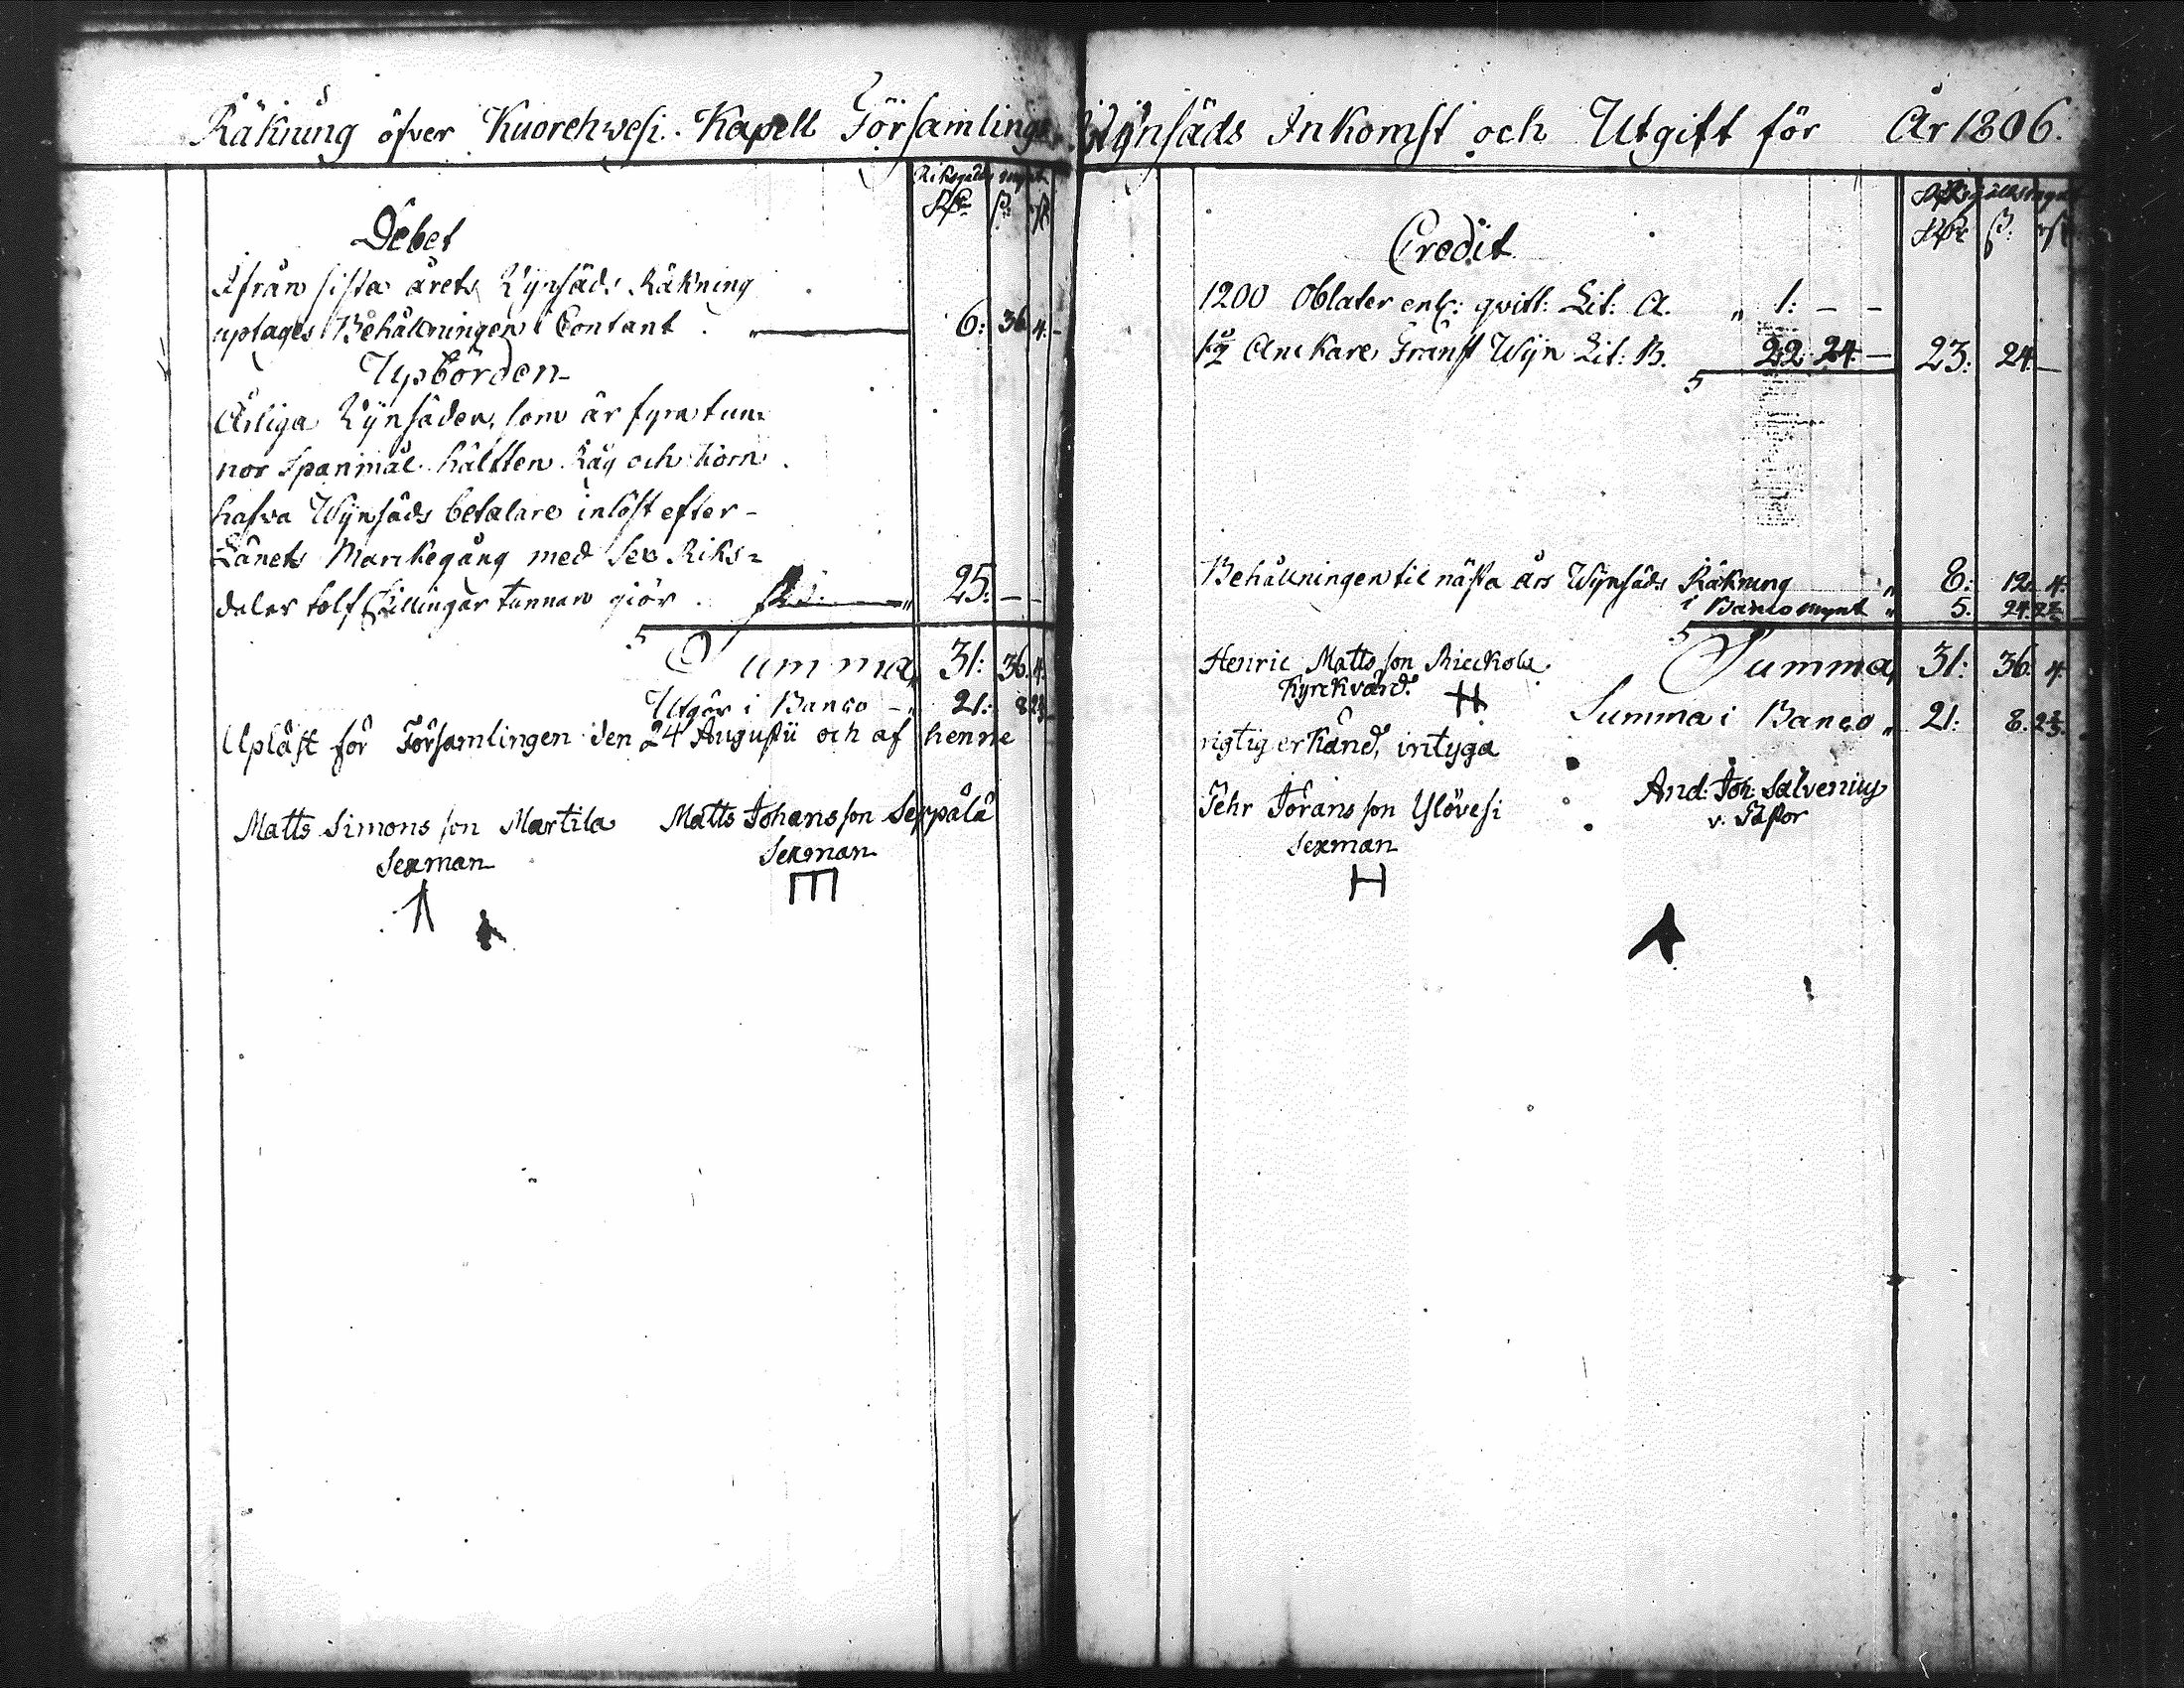 Räkning öfver Kuorehwesi Kapell Församlings Wijnsäds Inkomst och Utgift för År 1806.
Riksgälds mynt
Rdr ß: rst
Debet
Ifrån sista årets Wijnsäds Räkning
uptages Behållningen i Contant 6: 36 4.-
Upbörden
Årliga Wijnsäden, som är fyra tun=
nor Spanmål hälften Råg och Korn
hafva Wijnsäds betalare inlöst efter-
Länets Marckegång med sex Riks=
daler tolf Skillingar tunnan giör 25: - -
Summa 31: 36. 4.
Utgör i Banco 21: 8 2⅔
Upläst för Församlingen den 24 Augustii och af henne
Matts Simonsson Martila Matts Johansson Seppälä
Sexman Sexman
Riksgäldsmynt
Rdr ß: rst
Credit
1200 Oblater enl: qvitt: Lit: A. „ 1: - -
1½ Anckare Franst Wijn Lit: B. 22 24 - 23: 24. -
Behållningen til nästa års Wijnsäds Räkning „ 8: 12. 4.
i Banco mynt „ 5. 24. 2⅔
Henric Mattsson Rieckola Summa 31: 36. 4.
Kyrckvärd. H Summa i Banco „ 21: 8. 2⅔.
rigtig erkänd, intyga
Pehr Jöransson Ylövesi And: Joh: Salvenius
Sexman v. Pastor
H